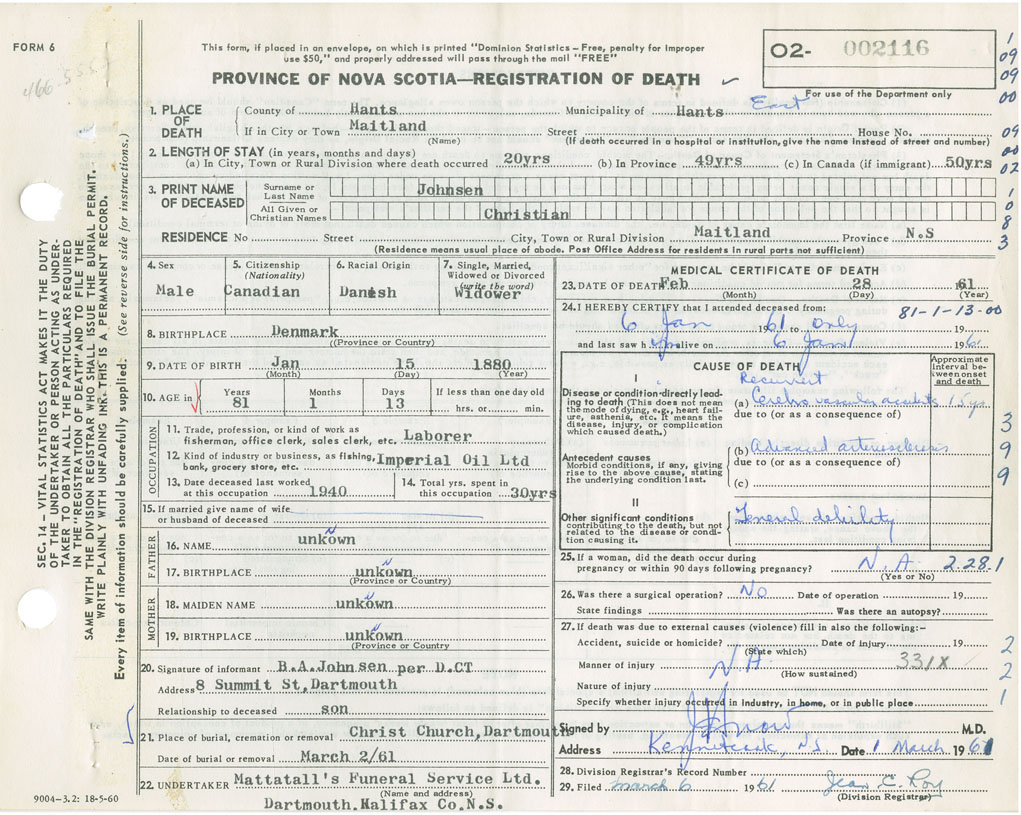 FORM 6
This form, if placed in an envelope, on which is printed "Dominion Statistics – Free, penalty for improper
use $50," and properly addressed will pass through the mail "FREE"
O2- 002116
For use of the Department only
PROVINCE OF NOVA SCOTIA—REGISTRATION OF DEATH
1. PLACE OF DEATH
County of Hants Municipality of East Hants
If in City or Town Maitland Street House No.
(Name) (If death occurred in a hospital or institution, give the name instead of street and number)
2. LENGTH OF STAY (in years, months and days)
(a) In City, Town or Rural Division where death occurred 20yrs (b) In Province 49yrs (c) In Canada (if immigrant) 50yrs
3. PRINT NAME OF DECEASED
Surname or Last Name Johnsen
All Given or Christian Names Christian
RESIDENCE No Street City, Town or Rural Division Maitland Province N.S
(Residence means usual place of abode. Post Office Address for residents in rural parts not sufficient)
4. Sex Male
5. Citizenship (Nationality) Canadian
6. Racial Origin Danish
7. Single, Married, Widowed or Divorced (write the word) Widower
8. BIRTHPLACE Denmark
(Province or Country)
9. DATE OF BIRTH Jan 15 1880
(Month) (Day) (Year)
10. AGE in Years 81 Months 1 Days 13 If less than one day old hrs. or min.
OCCUPATION
11. Trade, profession, or kind of work as fisherman, office clerk, sales clerk, etc. Laborer
12. Kind of industry or business, as fishing, bank, grocery store, etc. Imperial Oil Ltd
13. Date deceased last worked at this occupation 1940
14. Total yrs. spent in this occupation 30yrs
15. If married give name of wife or husband of deceased
FATHER
16. NAME unkown
17. BIRTHPLACE unkown
(Province or Country)
MOTHER
18. MAIDEN NAME unkown
19. BIRTHPLACE unkown
(Province or Country)
20. Signature of informant B.A.Johnsen per D.CT
Address 8 Summit St,Dartmouth
Relationship to deceased son
21. Place of burial, cremation or removal Christ Church,Dartmouth
Date of burial or removal March 2/61
22. UNDERTAKER Mattatall's Funeral Service Ltd.
(Name and address)
Dartmouth.Halifax Co.N.S.
MEDICAL CERTIFICATE OF DEATH
23. DATE OF DEATH Feb 28 61
(Month) (Day) (Year)
24. I HEREBY CERTIFY that I attended deceased from: 81-1-13-00
6 Jan 1961 to only 19
and last saw h alive on 6 Jan 196
CAUSE OF DEATH
Approximate interval between onset and death
I
Disease or condition directly leading to death (This does not mean the mode of dying, e.g., heart failure, asthenia, etc. It means the disease, injury, or complication which caused death.)
Recurrent
(a) Cerebro vascular accidents
due to (or as a consequence of)
Antecedent causes
Morbid conditions, if any, giving rise to the above cause, stating the underlying condition last.
(b) Advanced arteriosclerosis
due to (or as a consequence of)
(c)
II
Other significant conditions
contributing to the death, but not related to the disease or condition causing it.
General debility
25. If a woman, did the death occur during pregnancy or within 90 days following pregnancy? N.A. 2.28.1
(Yes or No)
26. Was there a surgical operation? No Date of operation 19
State findings Was there an autopsy?
27. If death was due to external causes (violence) fill in also the following:–
Accident, suicide or homicide? Date of injury 19
(State which)
Manner of injury NA 331X
(How sustained)
Nature of injury
Specify whether injury occurred in industry, in home, or in public place
Signed by M.D.
Address Kennetcook, N.S Date 1 March 1961
28. Division Registrar's Record Number
29. Filed march 6 1961 Jean C. Roy
(Division Registrar)
SEC. 14 – VITAL STATISTICS ACT MAKES IT THE DUTY
OF THE UNDERTAKER OR PERSON ACTING AS UNDER-
TAKER TO OBTAIN ALL THE PARTICULARS REQUIRED
IN THE "REGISTRATION OF DEATH" AND TO FILE THE
SAME WITH THE DIVISION REGISTRAR WHO SHALL ISSUE THE BURIAL PERMIT.
WRITE PLAINLY WITH UNFADING INK. THIS IS A PERMANENT RECORD.
Every item of information should be carefully supplied. (See reverse side for instructions.)
1
09
09
00
09
00
02
1
0
8
3
3
9
9
2
2
1
9004–3.2: 18-5-60